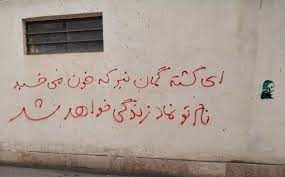 ای کشته گمان نبر که خون می خسبد
نام تو نماد زندگی خواهد شد